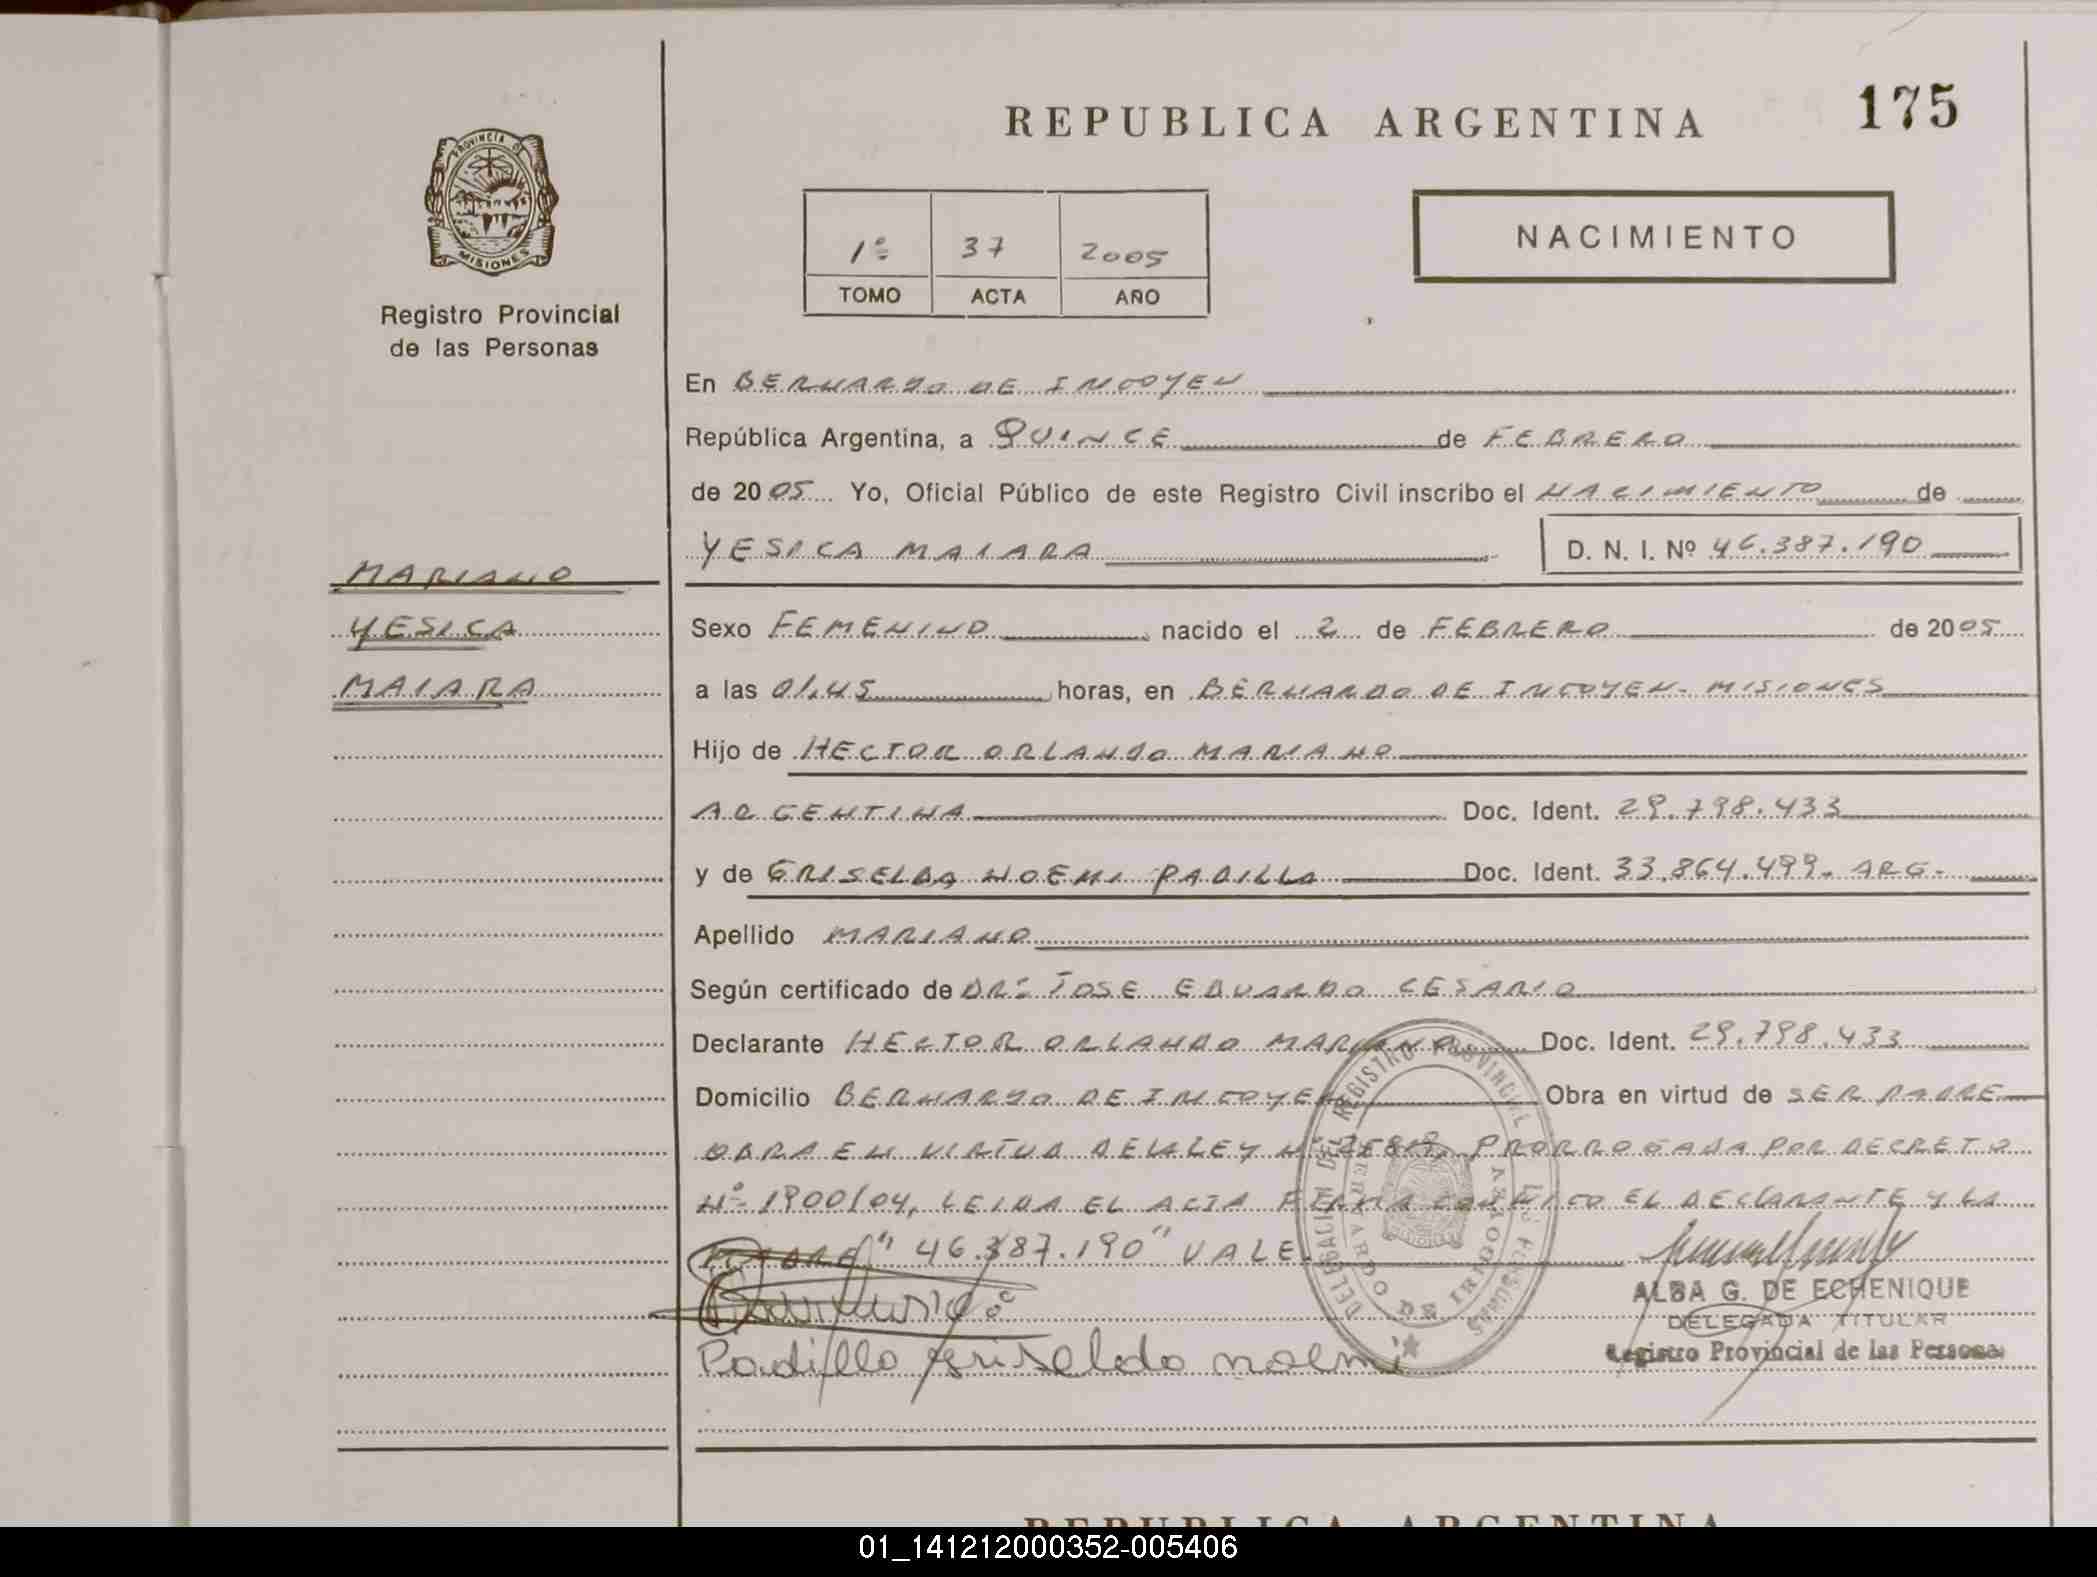 REPUBLICA ARGENTINA
175
PROVINCIA DE
MISIONES
Registro Provincial
de las Personas
1º 37 2005
TOMO ACTA AÑO
NACIMIENTO
En BERNARDO DE IRIGOYEN
República Argentina, a QUINCE de FEBRERO
de 2005 Yo, Oficial Público de este Registro Civil inscribo el NACIMIENTO de
YESICA MAIARA D. N. I. Nº 46.387.190
MARIANO
YESICA
MAIARA
Sexo FEMENINO nacido el 2 de FEBRERO de 2005
a las 01,45 horas, en BERNARDO DE IRIGOYEN - MISIONES
Hijo de HECTOR ORLANDO MARIANO
ARGENTINA Doc. Ident. 29.798.433
y de GRISELDA NOEMI PADILLA Doc. Ident. 33.864.499. ARG.
Apellido MARIANO
Según certificado de DR: JOSE EDUARDO CESARIO
Declarante HECTOR ORLANDO MARIANO Doc. Ident. 29.798.433
Domicilio BERNARDO DE IRIGOYEN Obra en virtud de SER PADRE
OBRA EN VIRTUD DE LA LEY Nº 25819, PRORROGADA POR DECRETO
Nº 1900/04, LEIDA EL ACTA FIRMA CONMIGO EL DECLARANTE Y LA
MADRE "46.387.190" VALE.
Padilla Griselda noemi
DELEGACION DEL REGISTRO PROVINCIAL DE LAS PERSONAS
BERNARDO DE IRIGOYEN
ALBA G. DE ECHENIQUE
DELEGADA TITULAR
Registro Provincial de las Personas
REPUBLICA ARGENTINA
01_141212000352-005406